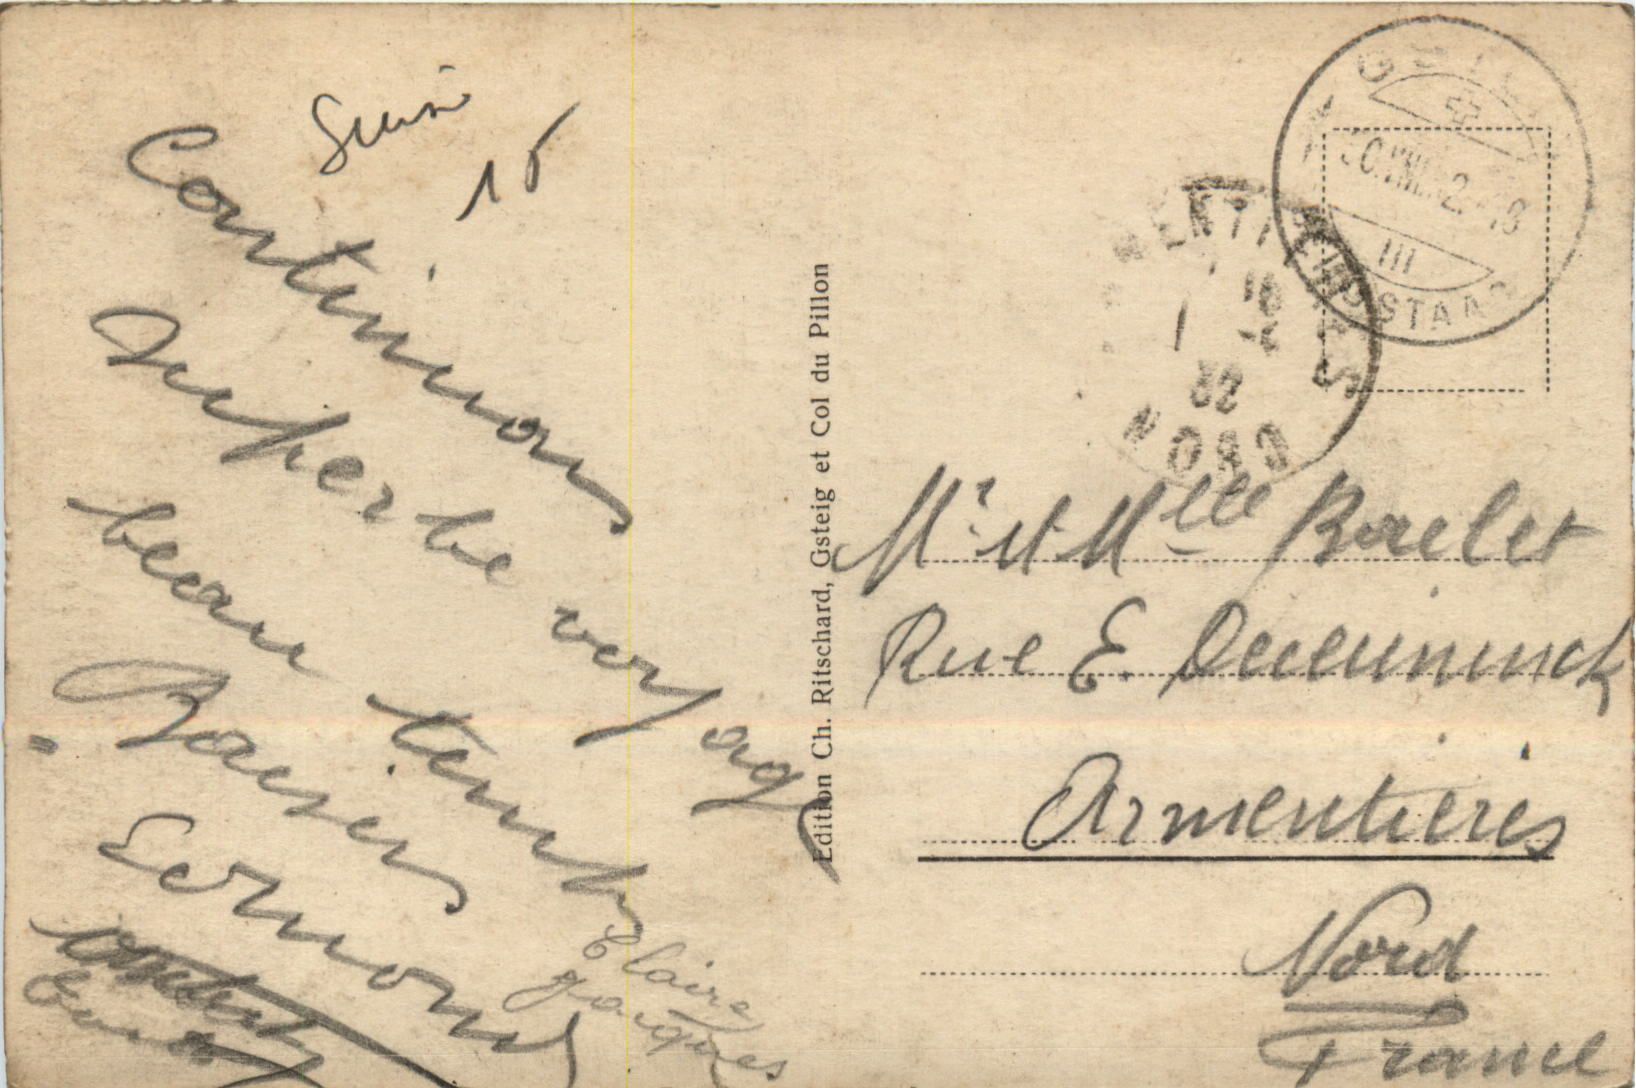 Suisse
15
Continuons
superbe voyage
beau temps
Baisers
Edmond
Claire
Jacques
Edition Ch. Ritschard, Gsteig et Col du Pillon
GSTEIG
III
STAAD
ARMENTIERES
NORD
Mr et Mlle Baelet
Rue E. Deceuninck
Armentières
Nord
France